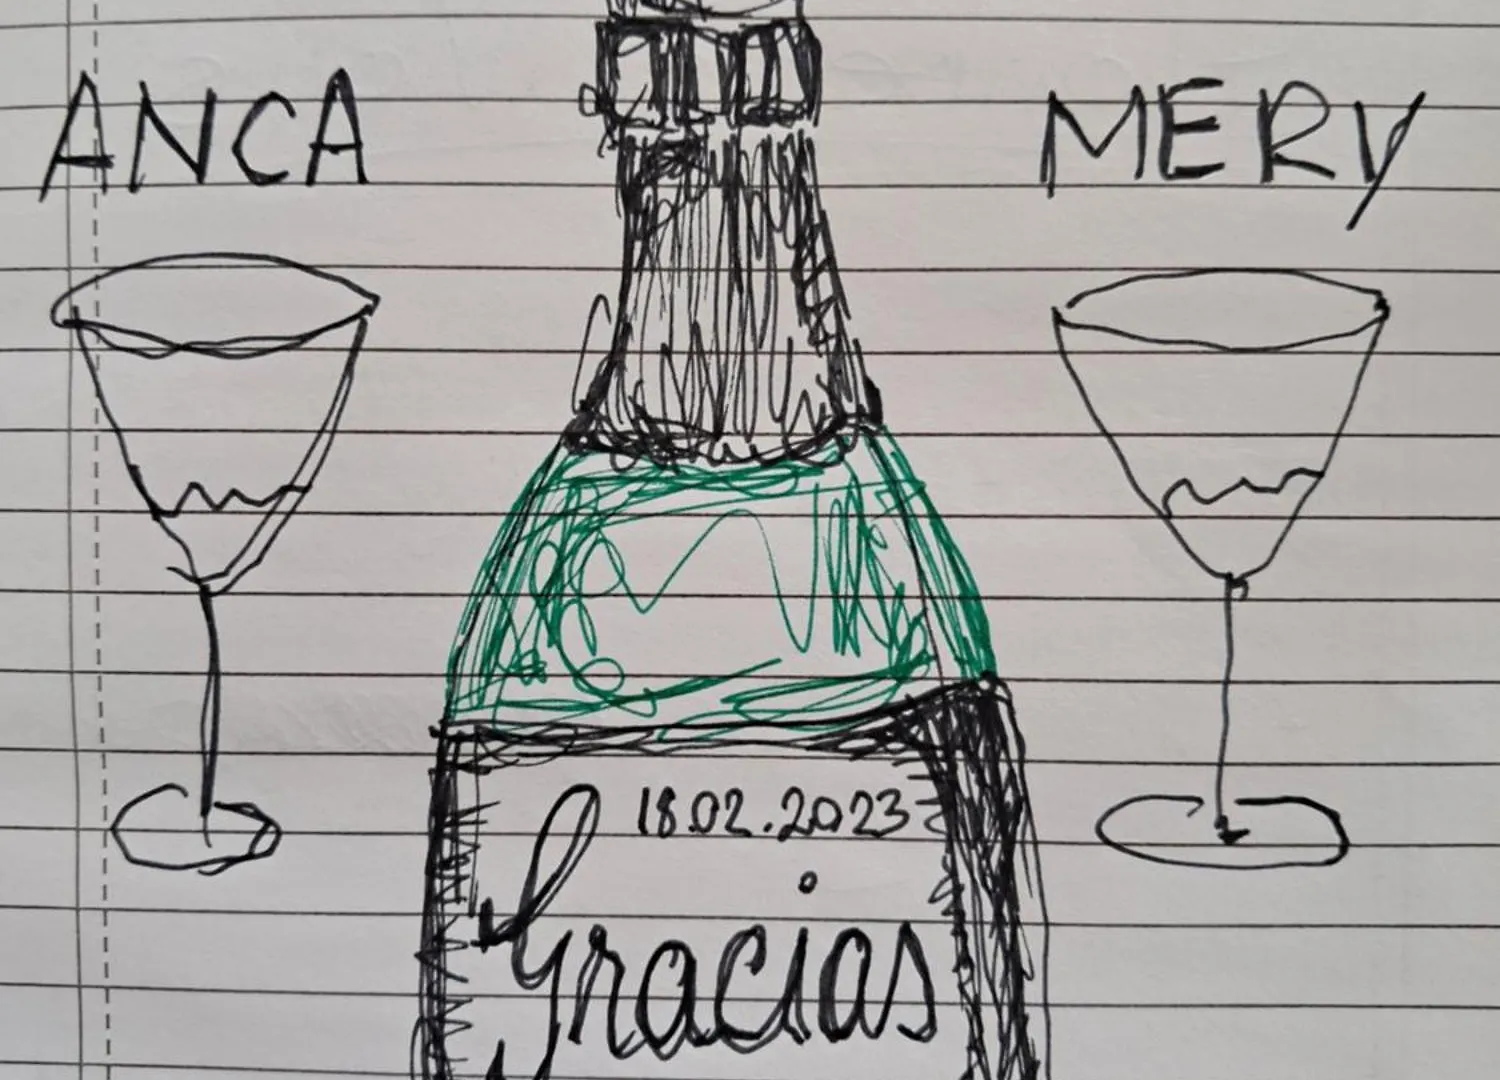 ANCA
MERY
18.02.2023
Gracias